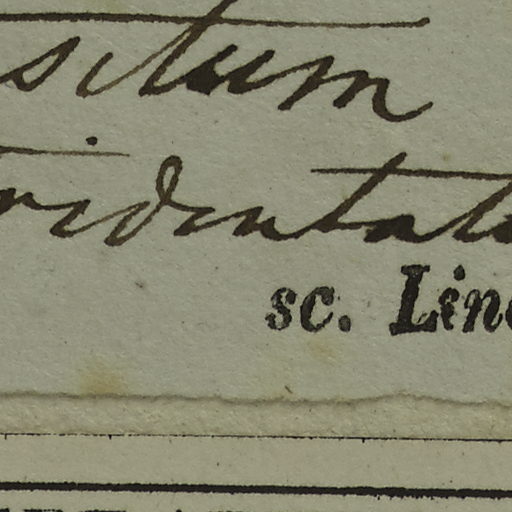 situm
ridentat
sc. Lin